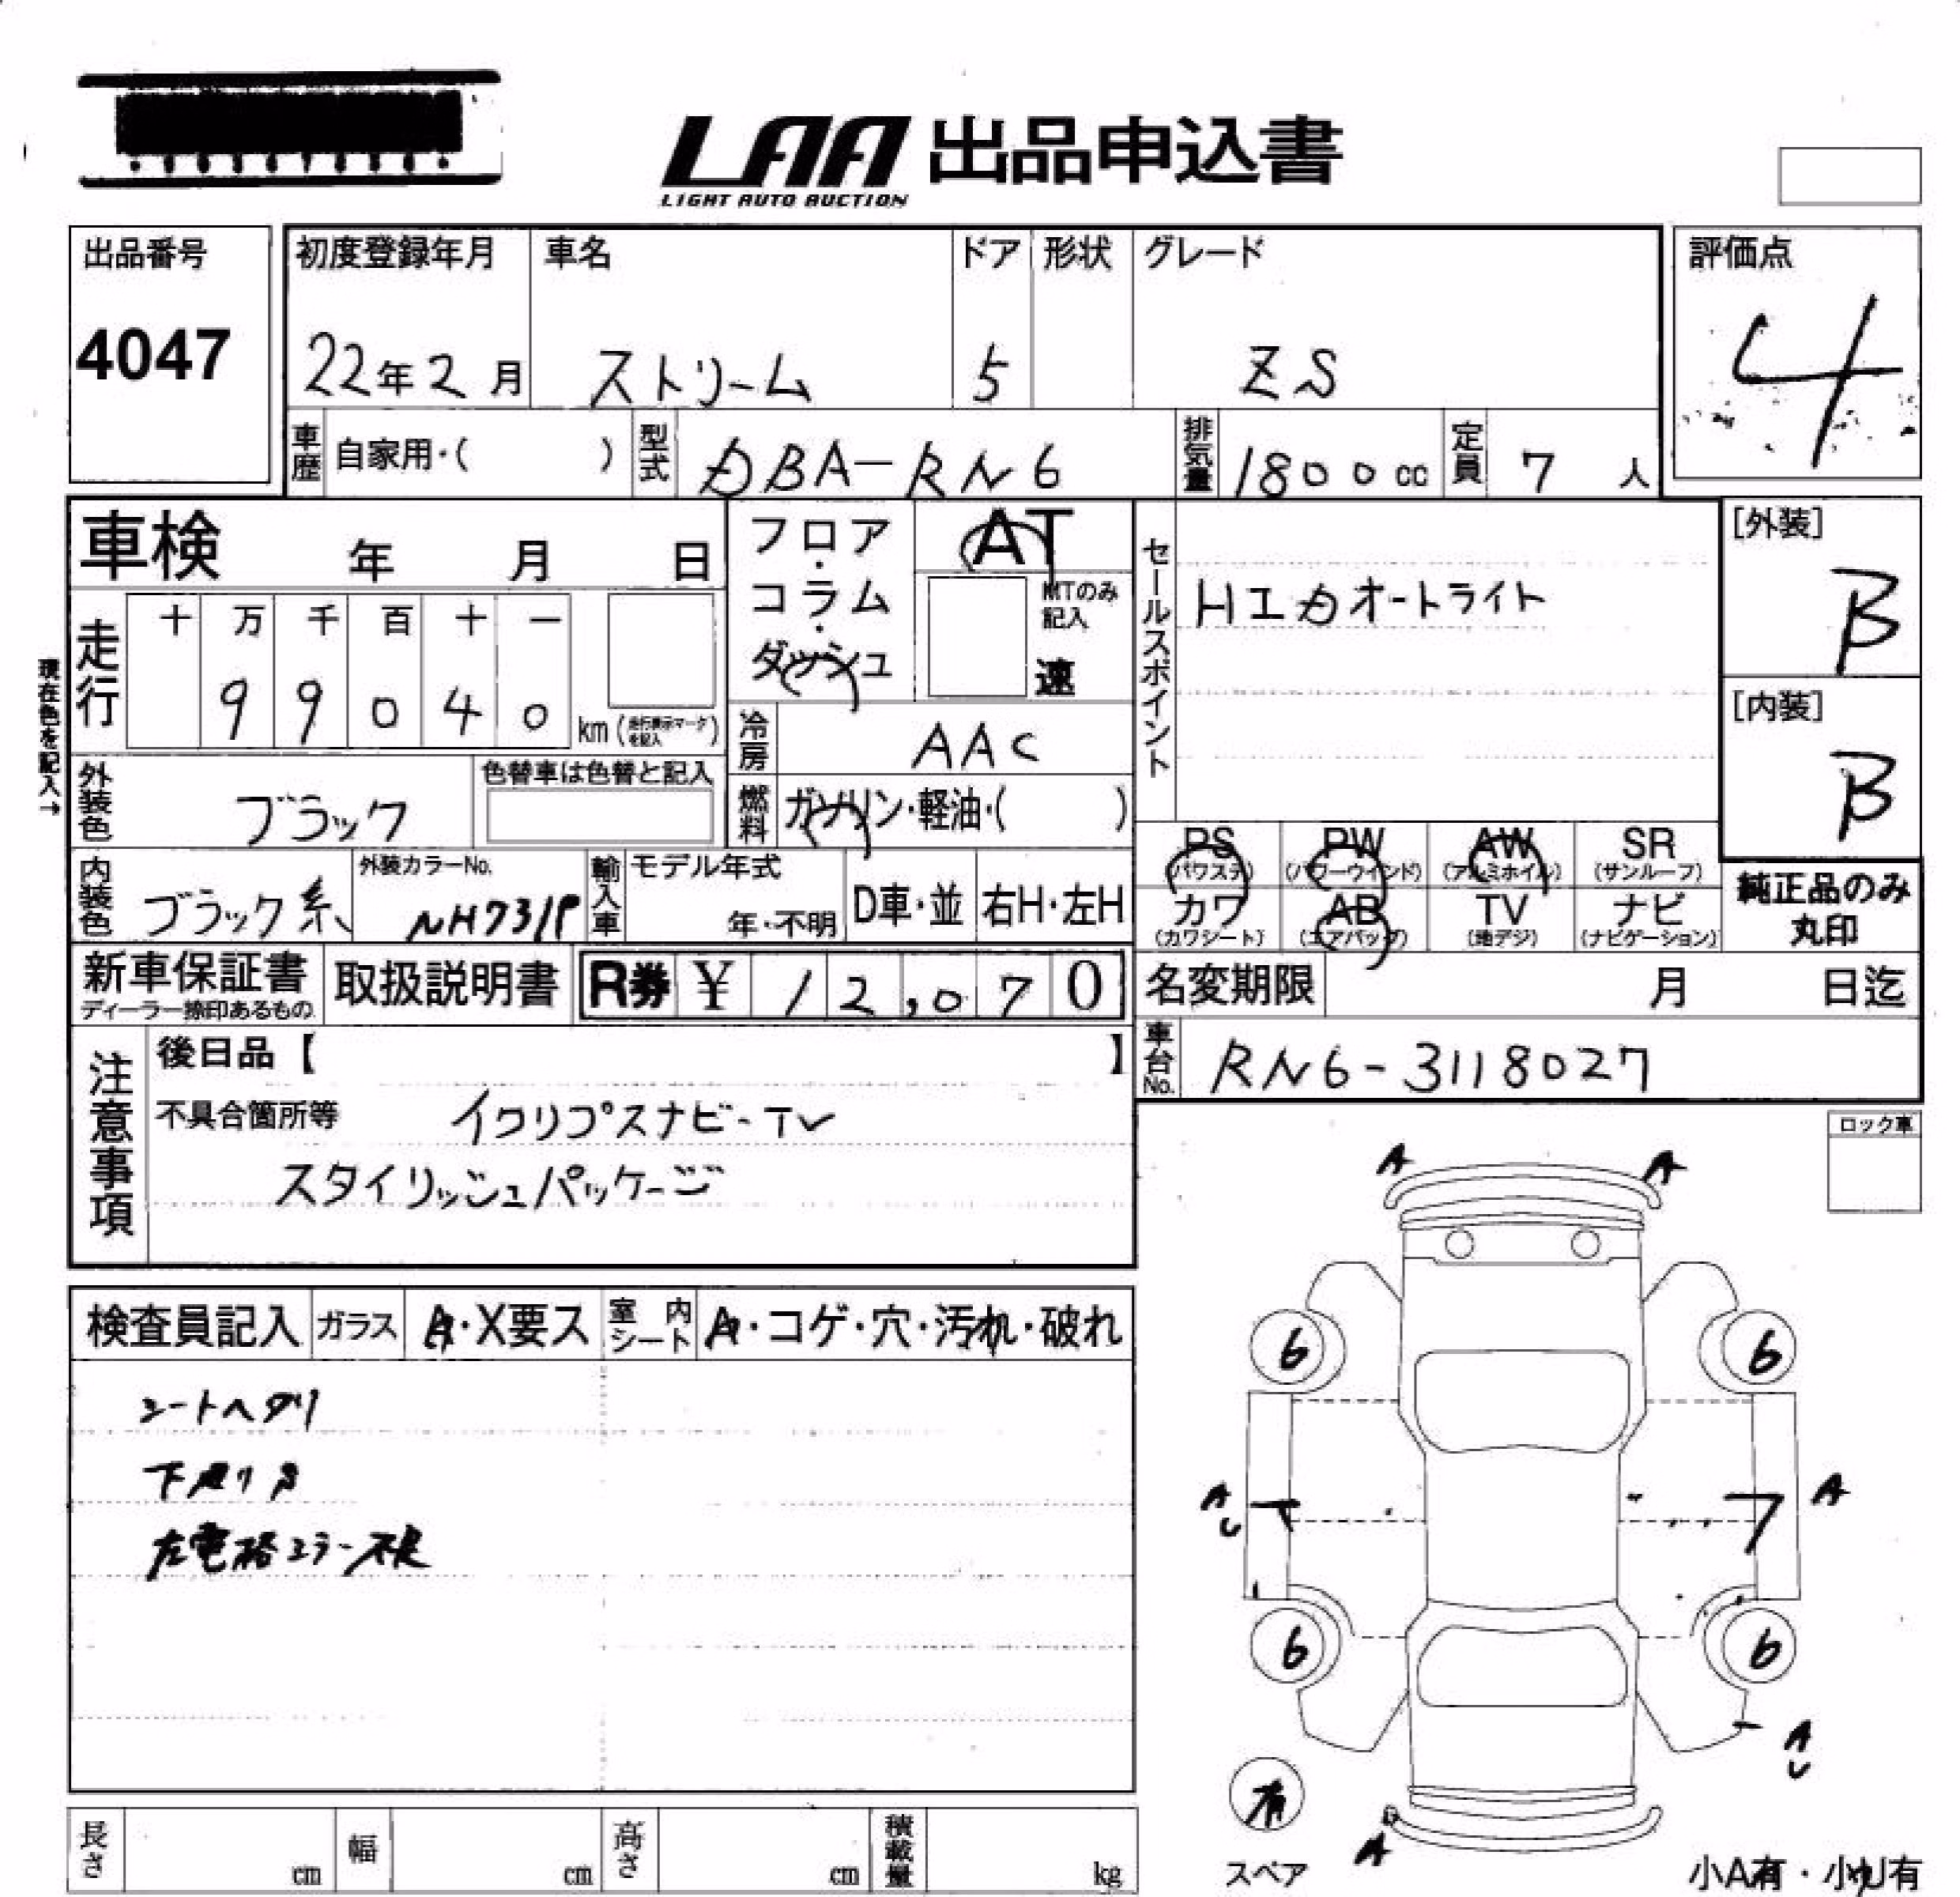 LAA 出品申込書
LIGHT AUTO AUCTION
出品番号
4047
初度登録年月 車名 ドア 形状 グレード
22年2月 ストリーム 5 ZS
評価点
4
車歴 自家用・( ) 型式 DBA-RN6 排気量 1800cc 定員 7人
車検 年 月 日
フロア・コラム・ダッシュ
AT
MTのみ記入
速
セールスポイント
HIDオートライト
[外装]
B
[内装]
B
現在色を記入→
走行 十 万 千 百 十 一
9 9 0 4 0 km (走行表示マークを記入)
冷房 AAC
外装色 ブラック
色替車は色替と記入
燃料 ガソリン・軽油・( )
PS (パワステ) PW (パワーウインド) AW (アルミホイル) SR (サンルーフ)
カワ (カワシート) AB (エアバッグ) TV (地デジ) ナビ (ナビゲーション)
純正品のみ丸印
内装色 ブラック系
外装カラーNo.
NH731P
輸入車 モデル年式
年・不明 D車・並 右H・左H
新車保証書
ディーラー捺印あるもの
取扱説明書 R券 ¥12,070
名変期限 月 日迄
車台No. RN6-3118027
注意事項
後日品【 】
不具合箇所等 イクリプスナビ-TV
スタイリッシュパッケージ
ロック車
検査員記入 ガラス A・X要ス 室内シート A・コゲ・穴・汚れ・破れ
シートヘタリ
下廻りS
左電格ミラー不良
A A
6 6
A U A
6 6
A U
有
スペア
A
小A有・小U有
長さ cm 幅 cm 高さ cm 積載量 kg